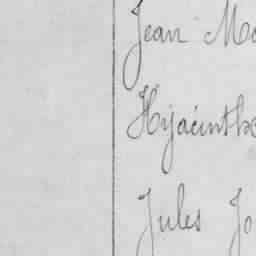 Jean Ma
Hyacinthe
Jules Jo